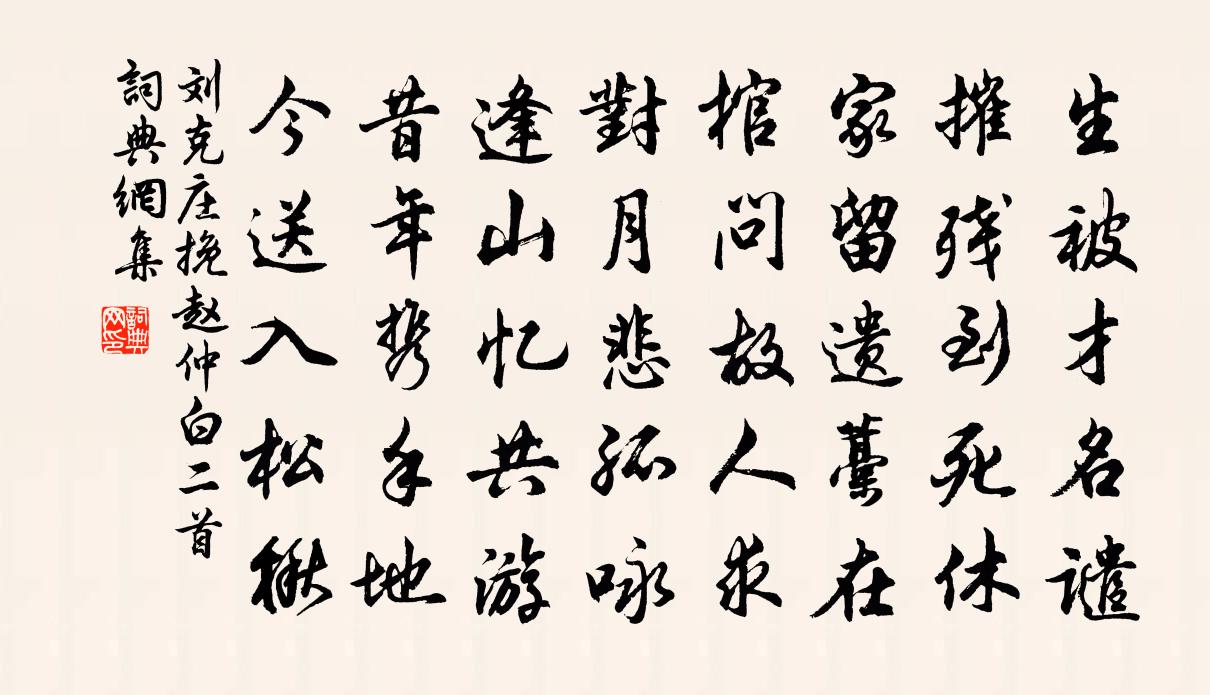 生被才名譴
摧残到死休
家留遗藳在
棺问故人求
對月悲孤咏
逢山忆共游
昔年携手地
今送入松楸
刘克庄挽赵仲白二首
詞典網集
詞典网印